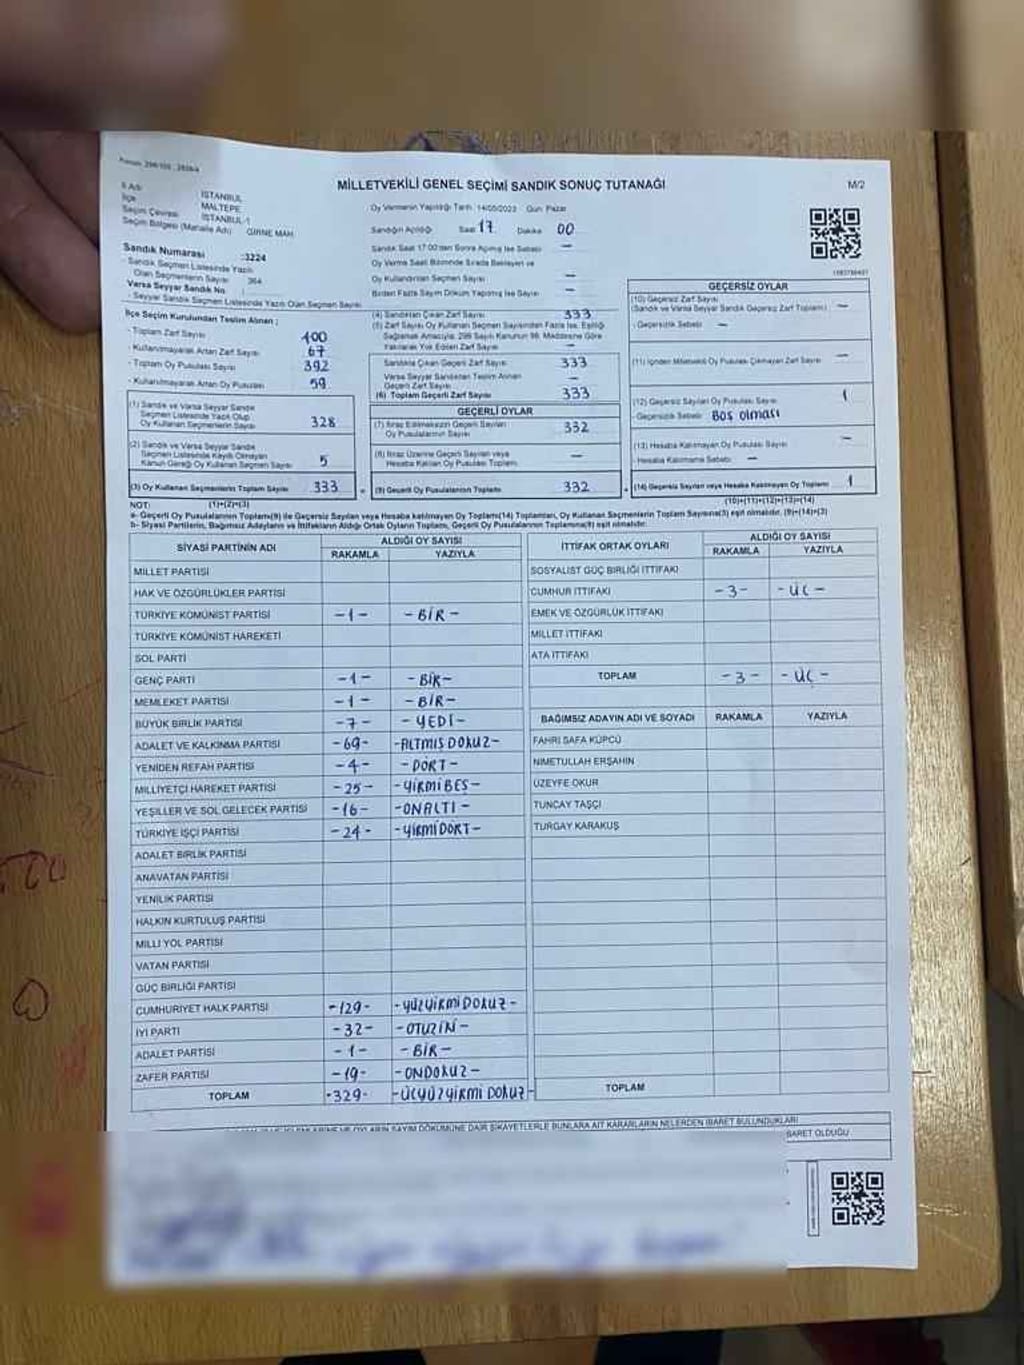 MİLLETVEKİLİ GENEL SEÇİMİ SANDIK SONUÇ TUTANAĞI
M/2
İl Adı İSTANBUL
İlçe MALTEPE
Seçim Çevresi İSTANBUL-1
Seçim Bölgesi (Mahalle Adı) GİRNE MAH.
Oy Vermenin Yapıldığı Tarih : 14/05/2023 Gün: Pazar
Sandığın Açıldığı Saat 17 Dakika 00
Sandık Saat 17:00'den Sonra Açılmış İse Sebebi —
Oy Verme Saati Bitiminde Sırada Bekleyen ve
Oy Kullandırılan Seçmen Sayısı —
Birden Fazla Sayım Döküm Yapılmış İse Sayısı —
Sandık Numarası :3224
- Sandık Seçmen Listesinde Yazılı
Olan Seçmenlerin Sayısı 364
Varsa Seyyar Sandık No
- Seyyar Sandık Seçmen Listesinde Yazılı Olan Seçmen Sayısı
İlçe Seçim Kurulundan Teslim Alınan ;
- Toplam Zarf Sayısı 400
- Kullanılmayarak Artan Zarf Sayısı 67
- Toplam Oy Pusulası Sayısı 392
- Kullanılmayarak Artan Oy Pusulası 59
(1) Sandık ve Varsa Seyyar Sandık
Seçmen Listesinde Yazılı Olup
Oy Kullanan Seçmenlerin Sayısı 328
(2) Sandık ve Varsa Seyyar Sandık
Seçmen Listesinde Kayıtlı Olmayan
Kanun Gereği Oy Kullanan Seçmen Sayısı 5
(3) Oy Kullanan Seçmenlerin Toplam Sayısı 333
(1)+(2)=(3)
(4) Sandıktan Çıkan Zarf Sayısı 333
(5) Zarf Sayısı Oy Kullanan Seçmen Sayısından Fazla İse, Eşitliği
Sağlamak Amacıyla, 298 Sayılı Kanunun 98. Maddesine Göre
Yakılarak Yok Edilen Zarf Sayısı —
Sandıkta Çıkan Geçerli Zarf Sayısı 333
Varsa Seyyar Sandıktan Teslim Alınan
Geçerli Zarf Sayısı —
(6) Toplam Geçerli Zarf Sayısı 333
GEÇERLİ OYLAR
(7) İtiraz Edilmeksizin Geçerli Sayılan
Oy Pusulalarının Sayısı 332
(8) İtiraz Üzerine Geçerli Sayılan veya
Hesaba Katılan Oy Pusulası Toplamı —
(9) Geçerli Oy Pusulalarının Toplamı 332
GEÇERSİZ OYLAR
(10) Geçersiz Zarf Sayısı
(Sandık ve Varsa Seyyar Sandık Geçersiz Zarf Toplamı) —
- Geçersizlik Sebebi —
(11) İçinden Milletvekili Oy Pusulası Çıkmayan Zarf Sayısı —
(12) Geçersiz Sayılan Oy Pusulası Sayısı 1
- Geçersizlik Sebebi BOŞ OLMASI
(13) Hesaba Katılmayan Oy Pusulası Sayısı —
- Hesaba Katılmama Sebebi —
(14) Geçersiz Sayılan veya Hesaba Katılmayan Oy Toplamı 1
(10)+(11)+(12)+(13)=(14)
NOT:
a- Geçerli Oy Pusulalarının Toplamı(9) ile Geçersiz Sayılan veya Hesaba Katılmayan Oy Toplamı(14) Toplamları, Oy Kullanan Seçmenlerin Toplam Sayısına(3) eşit olmalıdır. (9)+(14)=(3)
b- Siyasi Partilerin, Bağımsız Adayların ve İttifakların Aldığı Ortak Oyların Toplamı, Geçerli Oy Pusulalarının Toplamına(9) eşit olmalıdır.
SİYASİ PARTİNİN ADI ALDIĞI OY SAYISI
RAKAMLA YAZIYLA
MİLLET PARTİSİ
HAK VE ÖZGÜRLÜKLER PARTİSİ
TÜRKİYE KOMÜNİST PARTİSİ -1- -BİR-
TÜRKİYE KOMÜNİST HAREKETİ
SOL PARTİ
GENÇ PARTİ -1- -BİR-
MEMLEKET PARTİSİ -1- -BİR-
BÜYÜK BİRLİK PARTİSİ -7- -YEDİ-
ADALET VE KALKINMA PARTİSİ -69- -ALTMIŞ DOKUZ-
YENİDEN REFAH PARTİSİ -4- -DÖRT-
MİLLİYETÇİ HAREKET PARTİSİ -25- -YİRMİBEŞ-
YEŞİLLER VE SOL GELECEK PARTİSİ -16- -ONALTI-
TÜRKİYE İŞÇİ PARTİSİ -24- -YİRMİDÖRT-
ADALET BİRLİK PARTİSİ
ANAVATAN PARTİSİ
YENİLİK PARTİSİ
HALKIN KURTULUŞ PARTİSİ
MİLLİ YOL PARTİSİ
VATAN PARTİSİ
GÜÇ BİRLİĞİ PARTİSİ
CUMHURİYET HALK PARTİSİ -129- -YÜZYİRMİDOKUZ-
İYİ PARTİ -32- -OTUZİKİ-
ADALET PARTİSİ -1- -BİR-
ZAFER PARTİSİ -19- -ONDOKUZ-
TOPLAM -329- -ÜÇYÜZYİRMİ DOKUZ-
İTTİFAK ORTAK OYLARI ALDIĞI OY SAYISI
RAKAMLA YAZIYLA
SOSYALİST GÜÇ BİRLİĞİ İTTİFAKI
CUMHUR İTTİFAKI -3- -ÜÇ-
EMEK VE ÖZGÜRLÜK İTTİFAKI
MİLLET İTTİFAKI
ATA İTTİFAKI
TOPLAM -3- -ÜÇ-
BAĞIMSIZ ADAYIN ADI VE SOYADI RAKAMLA YAZIYLA
FAHRİ SAFA KÜPCÜ
NİMETULLAH ERŞAHİN
ÜZEYFE OKUR
TUNCAY TAŞÇI
TURGAY KARAKUŞ
TOPLAM
OYLARIN SAYIM DÖKÜMÜNE DAİR ŞİKAYETLERLE BUNLARA AİT KARARLARIN NELERDEN İBARET BULUNDUKLARI
İBARET OLDUĞU